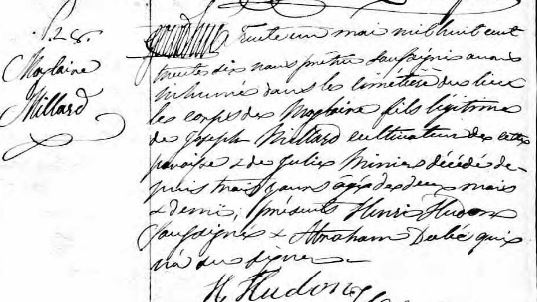 S. 28.
Maglaire
Millard
Trente un mai mil huit cent
trente six nous prêtre soussigné avons
inhumé dans le cimetière du lieu
le corps de Maglaire fils légitime
de Joseph Millard cultivateur de cette
paroisse & de Julie Minier décédé de-
puis trois jours agé de deux mois
& demi, présents Henri Hudon
soussigné & Abraham qui
n'a su signer
H Hudon